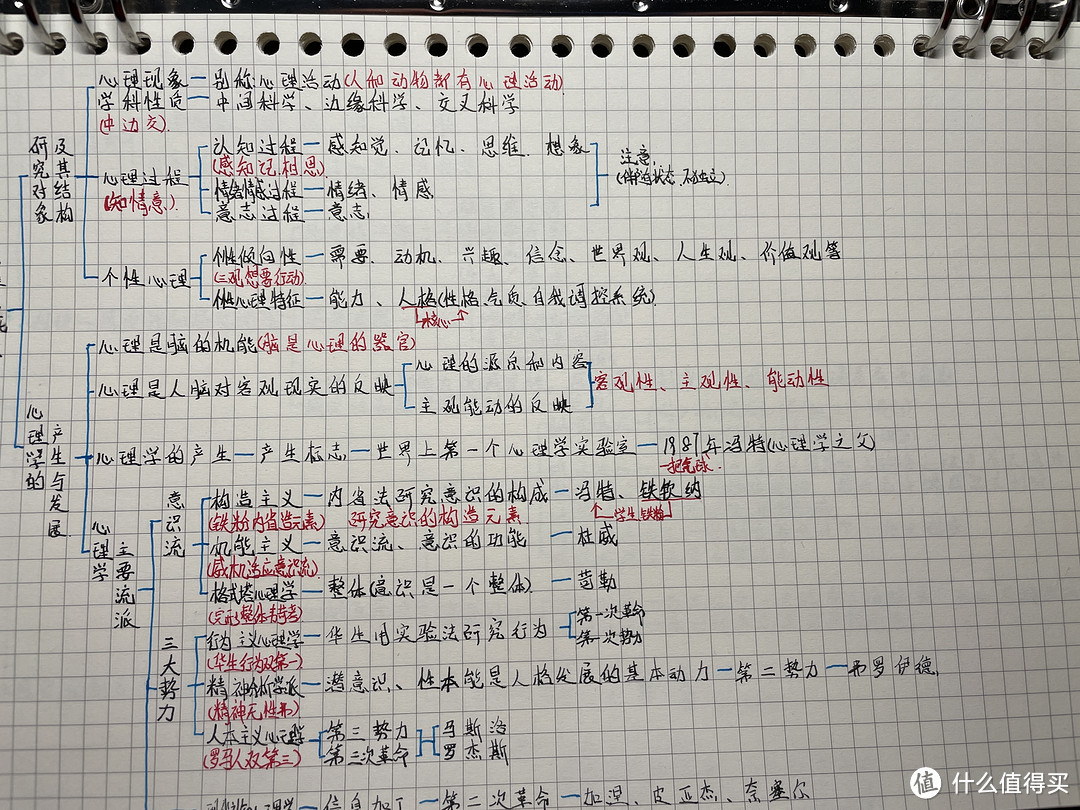 心理现象—别称:心理活动(人和动物都有心理活动)
学科性质—中间科学、边缘科学、交叉科学
(中边交)
研究对象及其结构
认知过程—感知觉、记忆、思维、想象
(感知记,相思)
心理过程
(知情意)
情绪情感过程—情绪、情感
意志过程—意志
注意
个性倾向性—需要、动机、兴趣、信念、世界观、人生观、价值观等
(三观想要行动)
个性心理
个性心理特征—能力、人格(性格,气质,自我调控系统)
核心
心理是脑的机能(脑是心理的器官)
心理的源泉和内容
心理是人脑对客观现实的反映
客观性、主观性、能动性
主观能动的反映
心理学的产生与发展
心理学的产生—产生标志—世界上第一个心理学实验室—1987年冯特(心理学之父)
一把气球
心理学主要流派
意识流
构造主义—内省法研究意识的构成—冯特、铁钦纳
(铁粉内省造元素) 研究意识的构造元素
学生,铁粉
机能主义—意识流、意识的功能—杜威
(威机适应意识流)
格式塔心理学—整体(意识是一个整体)—苛勒
三大势力
行为主义心理学—华生用实验法研究行为
第一次革命
第一次势力
(华生行为双第一)
精神分析学派—潜意识、性本能是人格发展的基本动力—第二势力—弗罗伊德
人本主义心理学
第三势力
第三次革命
马斯洛
罗杰斯
(罗马人双第三)
信息加工—第二次革命—加涅、皮亚杰、奈塞尔
值 什么值得买